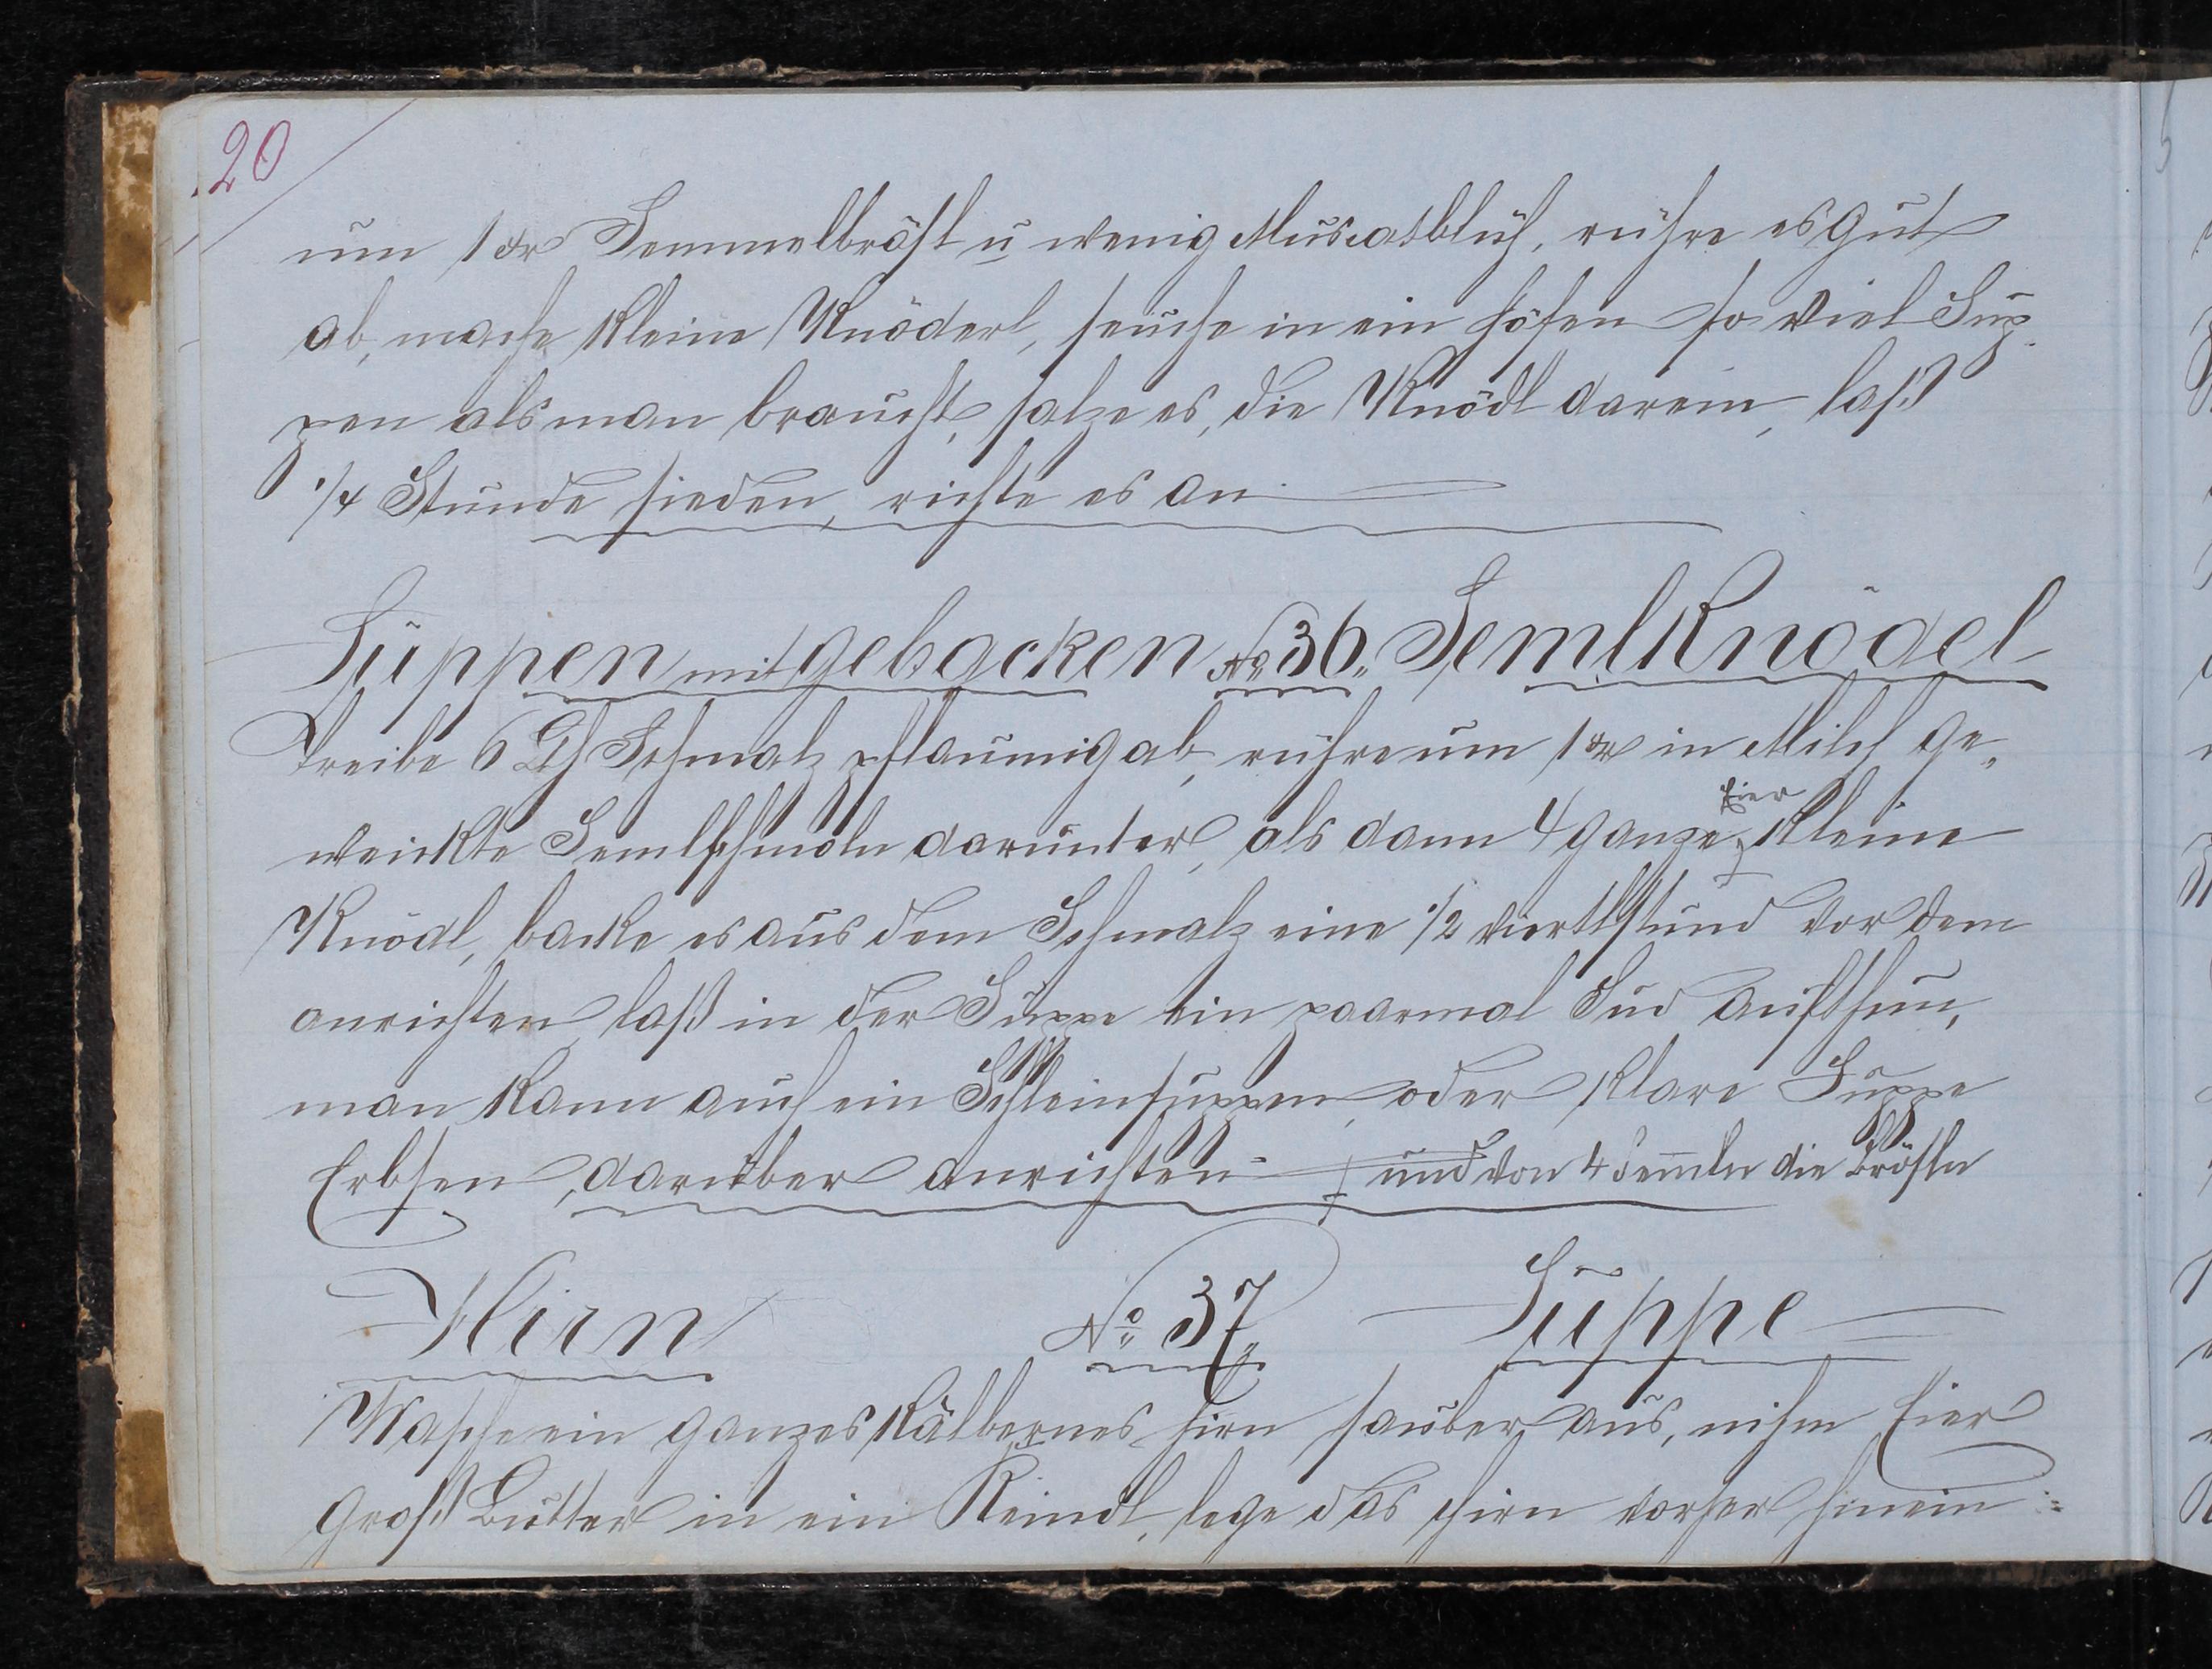 20
um 1 xr Semmelbröst u wenig Muscatblüh, rühre es gut
ab, mache kleine Knöderl, seuche in ein Höfen so viel Sup-
pen als man braucht, salze es, die Knödl darein, laß
1/4 Stunde sieden, richte es an
Suppen mit gebacken No 36 Semlknödel
Treibe 6 Lth Schmalz pflaumig ab, rühre um 1 xr in Milch ge„
weickte Semlschmoln darunter, als dann 4 ganze Eier kleine
Knödl, backe es aus dem Schmalz eine 1/2 viertlstund vor dem
anrichten, laß in der Suppe ein paarmal Sud aufthun,
man kann auch ein Schleinsuppen, oder klare Suppe
Erbsen, darüber anrichten und von 4 Semeln die Bröseln
Hirn No 37 Suppe
Wasche ein ganzes kälbernes Hirn sauber aus, nihm Eier
groß Butter in ein Reindl, lege das Hirn vorher hinein